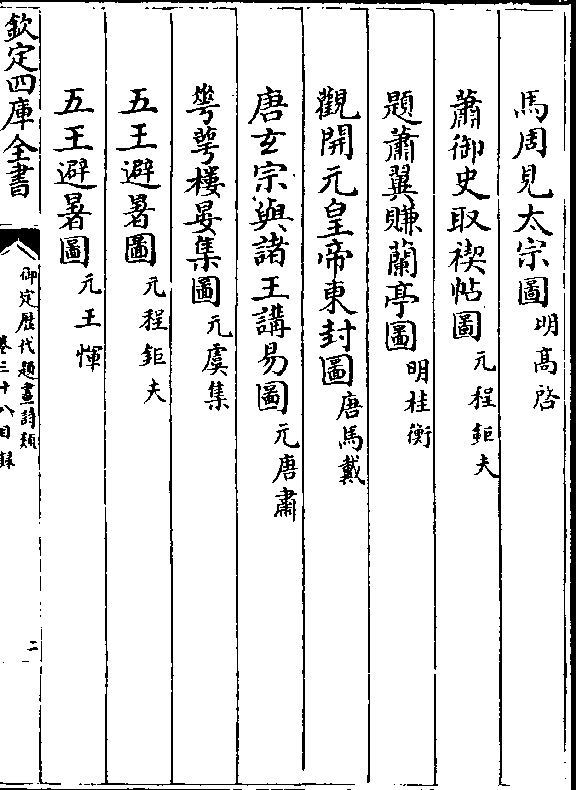 馬周見太宗圖明高啓
蕭御史取禊帖圖元程鉅夫
題蕭翼賺蘭亭圖明桂衡
觀開元皇帝東封圖唐馬戴
唐玄宗與諸王講易圖元唐肅
華萼樓晏集圖元虞集
五王避暑圖元程鉅夫
五王避暑圖元王惲
欽定四庫全書
御定歴代題畫詩類
卷三十八目録
二